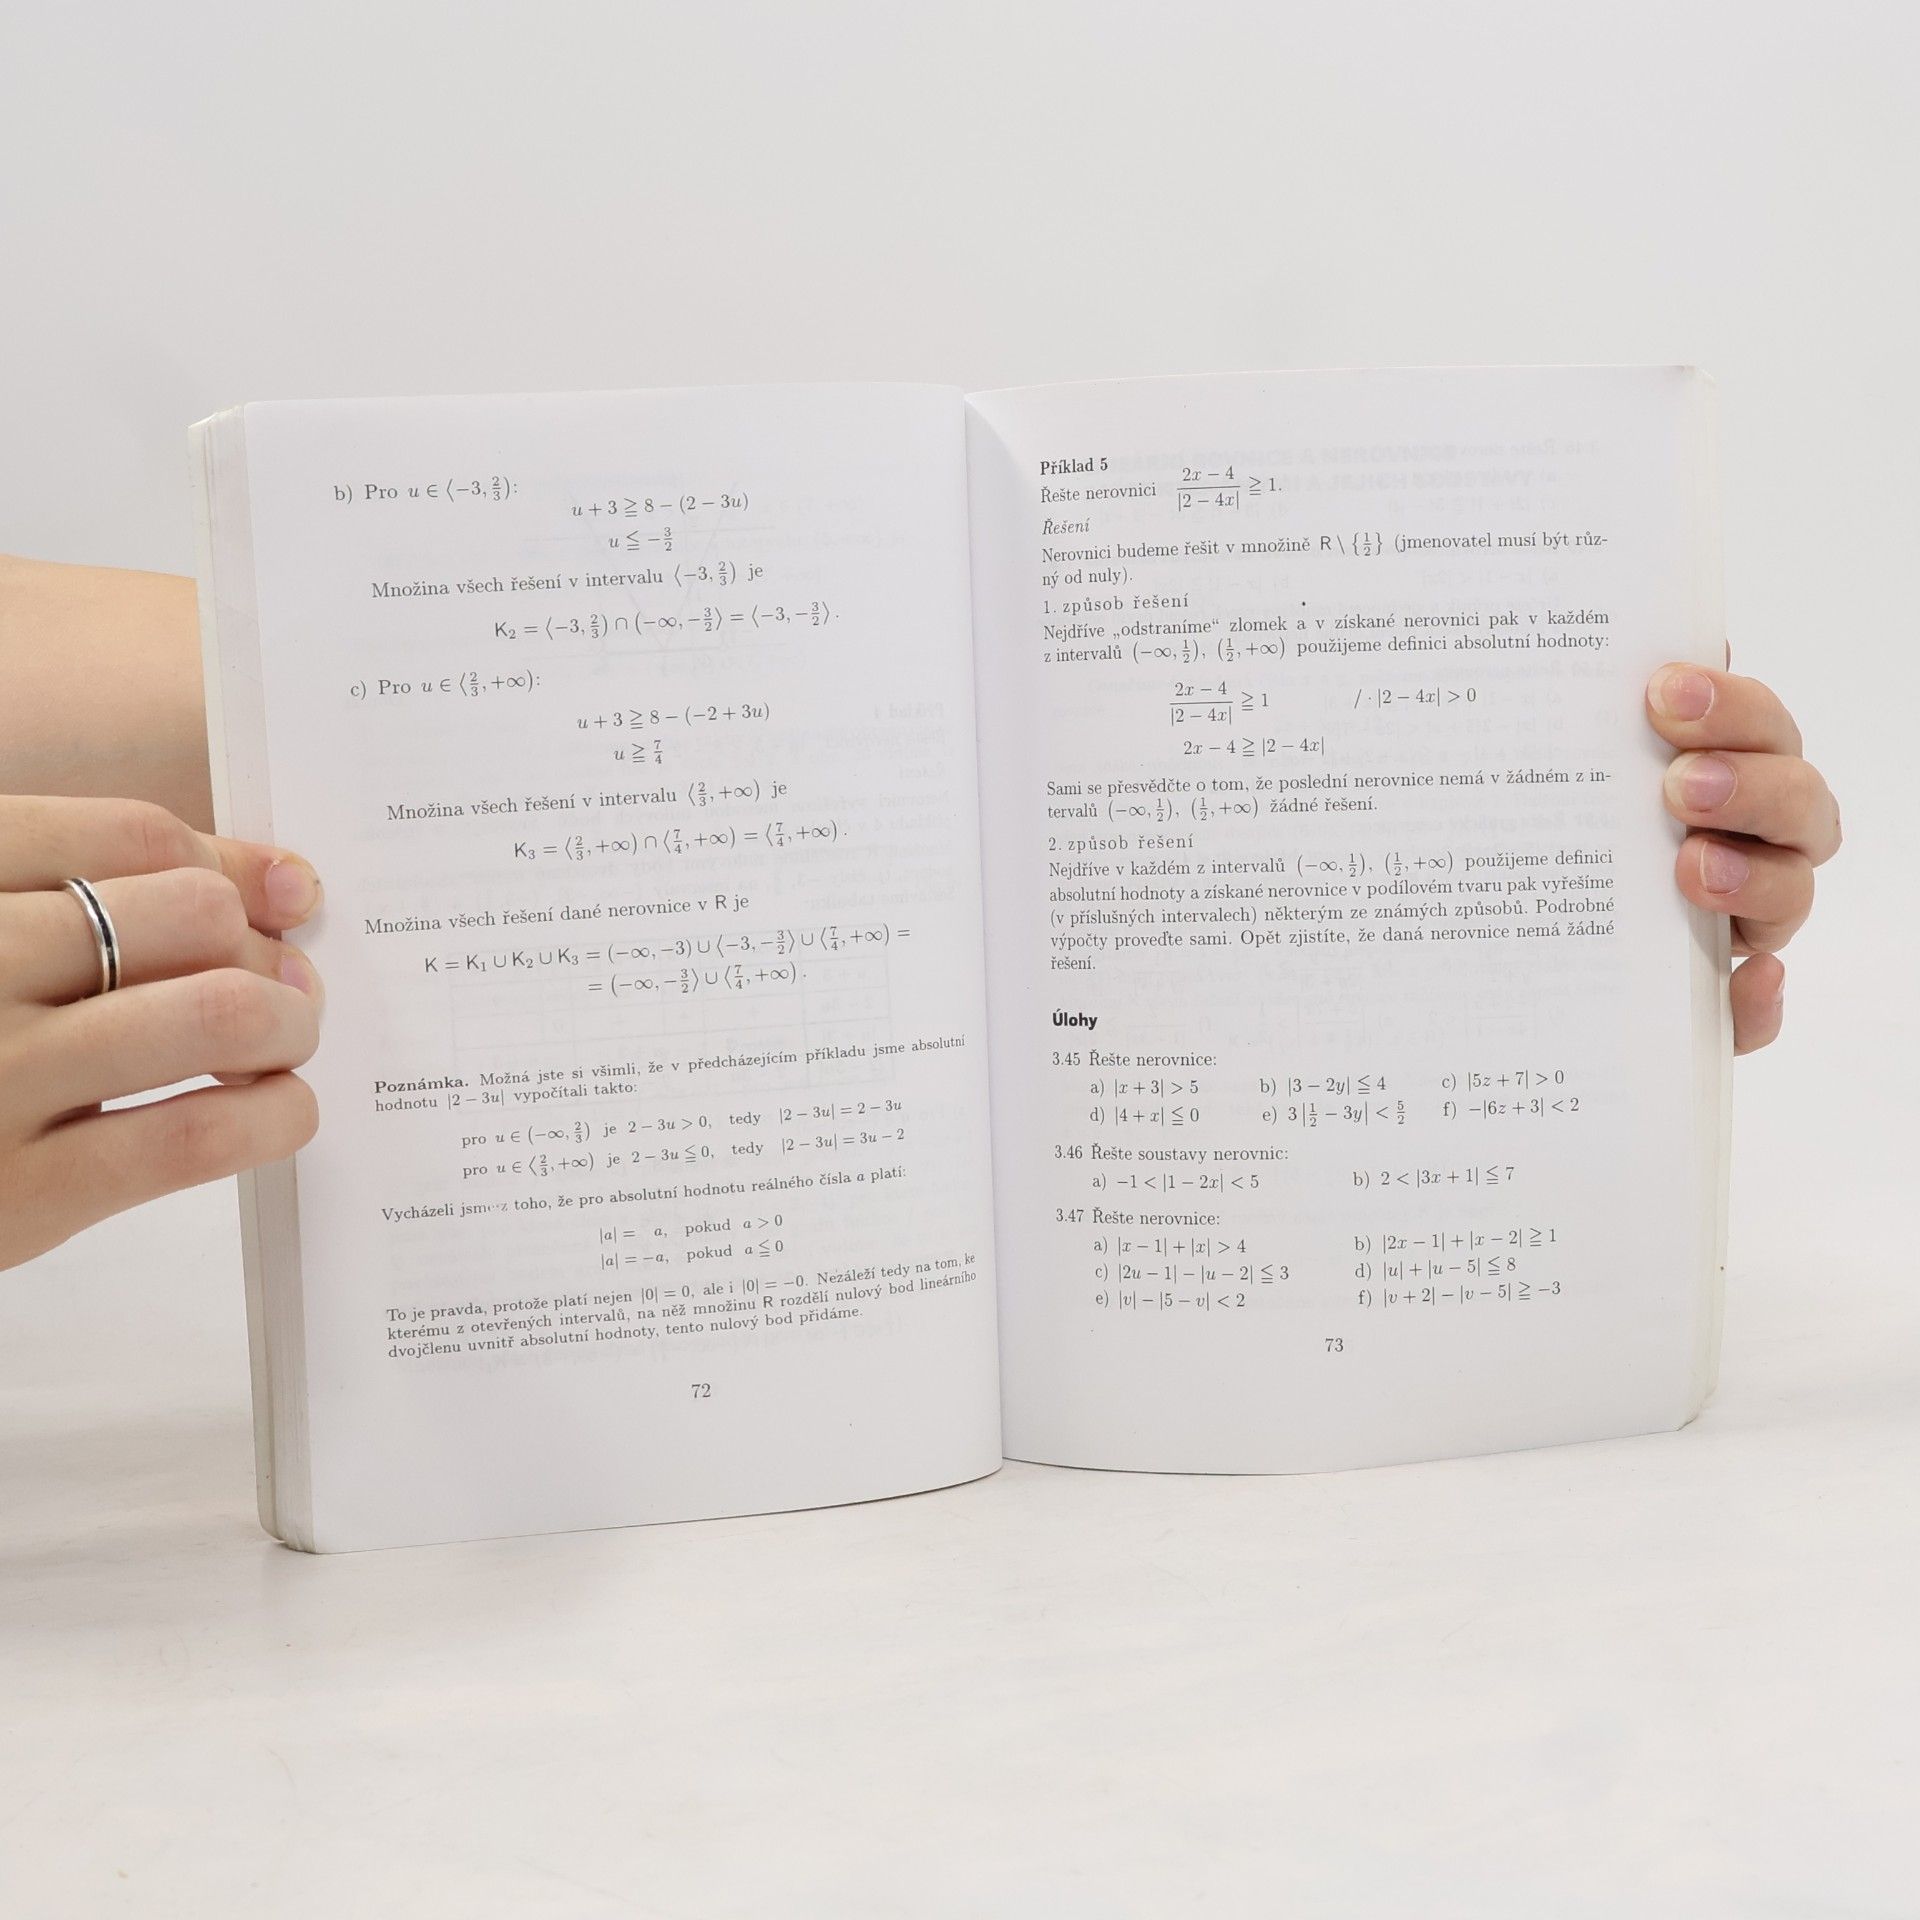 b) Pro u ∈ ⟨−3, 2/3):
u + 3 ≧ 8 − (2 − 3u)
u ≦ −3/2
Množina všech řešení v intervalu ⟨−3, 2/3) je
K₂ = ⟨−3, 2/3) ∩ (−∞, −3/2⟩ = ⟨−3, −3/2⟩.
c) Pro u ∈ ⟨2/3, +∞):
u + 3 ≧ 8 − (−2 + 3u)
u ≧ 7/4
Množina všech řešení v intervalu ⟨2/3, +∞) je
K₃ = ⟨2/3, +∞) ∩ ⟨7/4, +∞) = ⟨7/4, +∞).
Množina všech řešení dané nerovnice v R je
K = K₁ ∪ K₂ ∪ K₃ = (−∞, −3) ∪ ⟨−3, −3/2⟩ ∪ ⟨7/4, +∞) =
= (−∞, −3/2⟩ ∪ ⟨7/4, +∞).
Poznámka. Možná jste si všimli, že v předcházejícím příkladu jsme absolutní
hodnotu |2 − 3u| vypočítali takto:
pro u ∈ (−∞, 2/3) je 2 − 3u > 0, tedy |2 − 3u| = 2 − 3u
pro u ∈ ⟨2/3, +∞) je 2 − 3u ≦ 0, tedy |2 − 3u| = 3u − 2
Vycházeli jsme z toho, že pro absolutní hodnotu reálného čísla a platí:
|a| = a, pokud a > 0
|a| = −a, pokud a ≦ 0
To je pravda, protože platí nejen |0| = 0, ale i |0| = −0. Nezáleží tedy na tom, ke
kterému z otevřených intervalů, na něž množinu R rozdělí nulový bod lineárního
dvojčlenu uvnitř absolutní hodnoty, tento nulový bod přidáme.
72
Příklad 5
Řešte nerovnici (2x − 4)/|2 − 4x| ≧ 1.
Řešení
Nerovnici budeme řešit v množině R \ {1/2} (jmenovatel musí být růz-
ný od nuly).
1. způsob řešení
Nejdříve „odstraníme“ zlomek a v získané nerovnici pak v každém
z intervalů (−∞, 1/2), (1/2, +∞) použijeme definici absolutní hodnoty:
(2x − 4)/|2 − 4x| ≧ 1 / · |2 − 4x| > 0
2x − 4 ≧ |2 − 4x|
Sami se přesvědčte o tom, že poslední nerovnice nemá v žádném z in-
tervalů (−∞, 1/2), (1/2, +∞) žádné řešení.
2. způsob řešení
Nejdříve v každém z intervalů (−∞, 1/2), (1/2, +∞) použijeme definici
absolutní hodnoty a získané nerovnice v podílovém tvaru pak vyřešíme
(v příslušných intervalech) některým ze známých způsobů. Podrobné
výpočty proveďte sami. Opět zjistíte, že daná nerovnice nemá žádné
řešení.
Úlohy
3.45 Řešte nerovnice:
a) |x + 3| > 5 b) |3 − 2y| ≦ 4 c) |5z + 7| > 0
d) |4 + x| ≦ 0 e) 3|1/2 − 3y| < 5/2 f) −|6z + 3| < 2
3.46 Řešte soustavy nerovnic:
a) −1 < |1 − 2x| < 5 b) 2 < |3x + 1| ≦ 7
3.47 Řešte nerovnice:
a) |x − 1| + |x| > 4 b) |2x − 1| + |x − 2| ≧ 1
c) |2u − 1| − |u − 2| ≦ 3 d) |u| + |u − 5| ≦ 8
e) |v| − |5 − v| < 2 f) |v + 2| − |v − 5| ≧ −3
73